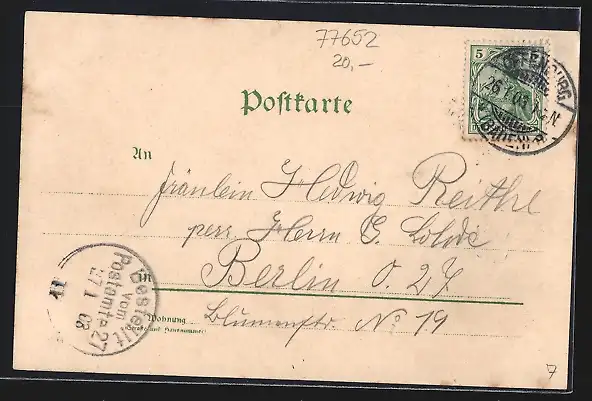 77652
20,-
5
26.1.03
BADEN
Postkarte
An
Fräulein Hedwig Reithe
per. Herrn G. Lohde
in Berlin O. 27
Wohnung
(Straße und Hausnummer)
Blumenstr. No 19
Bestellt
vom
Postamte 27
27 1 03
7